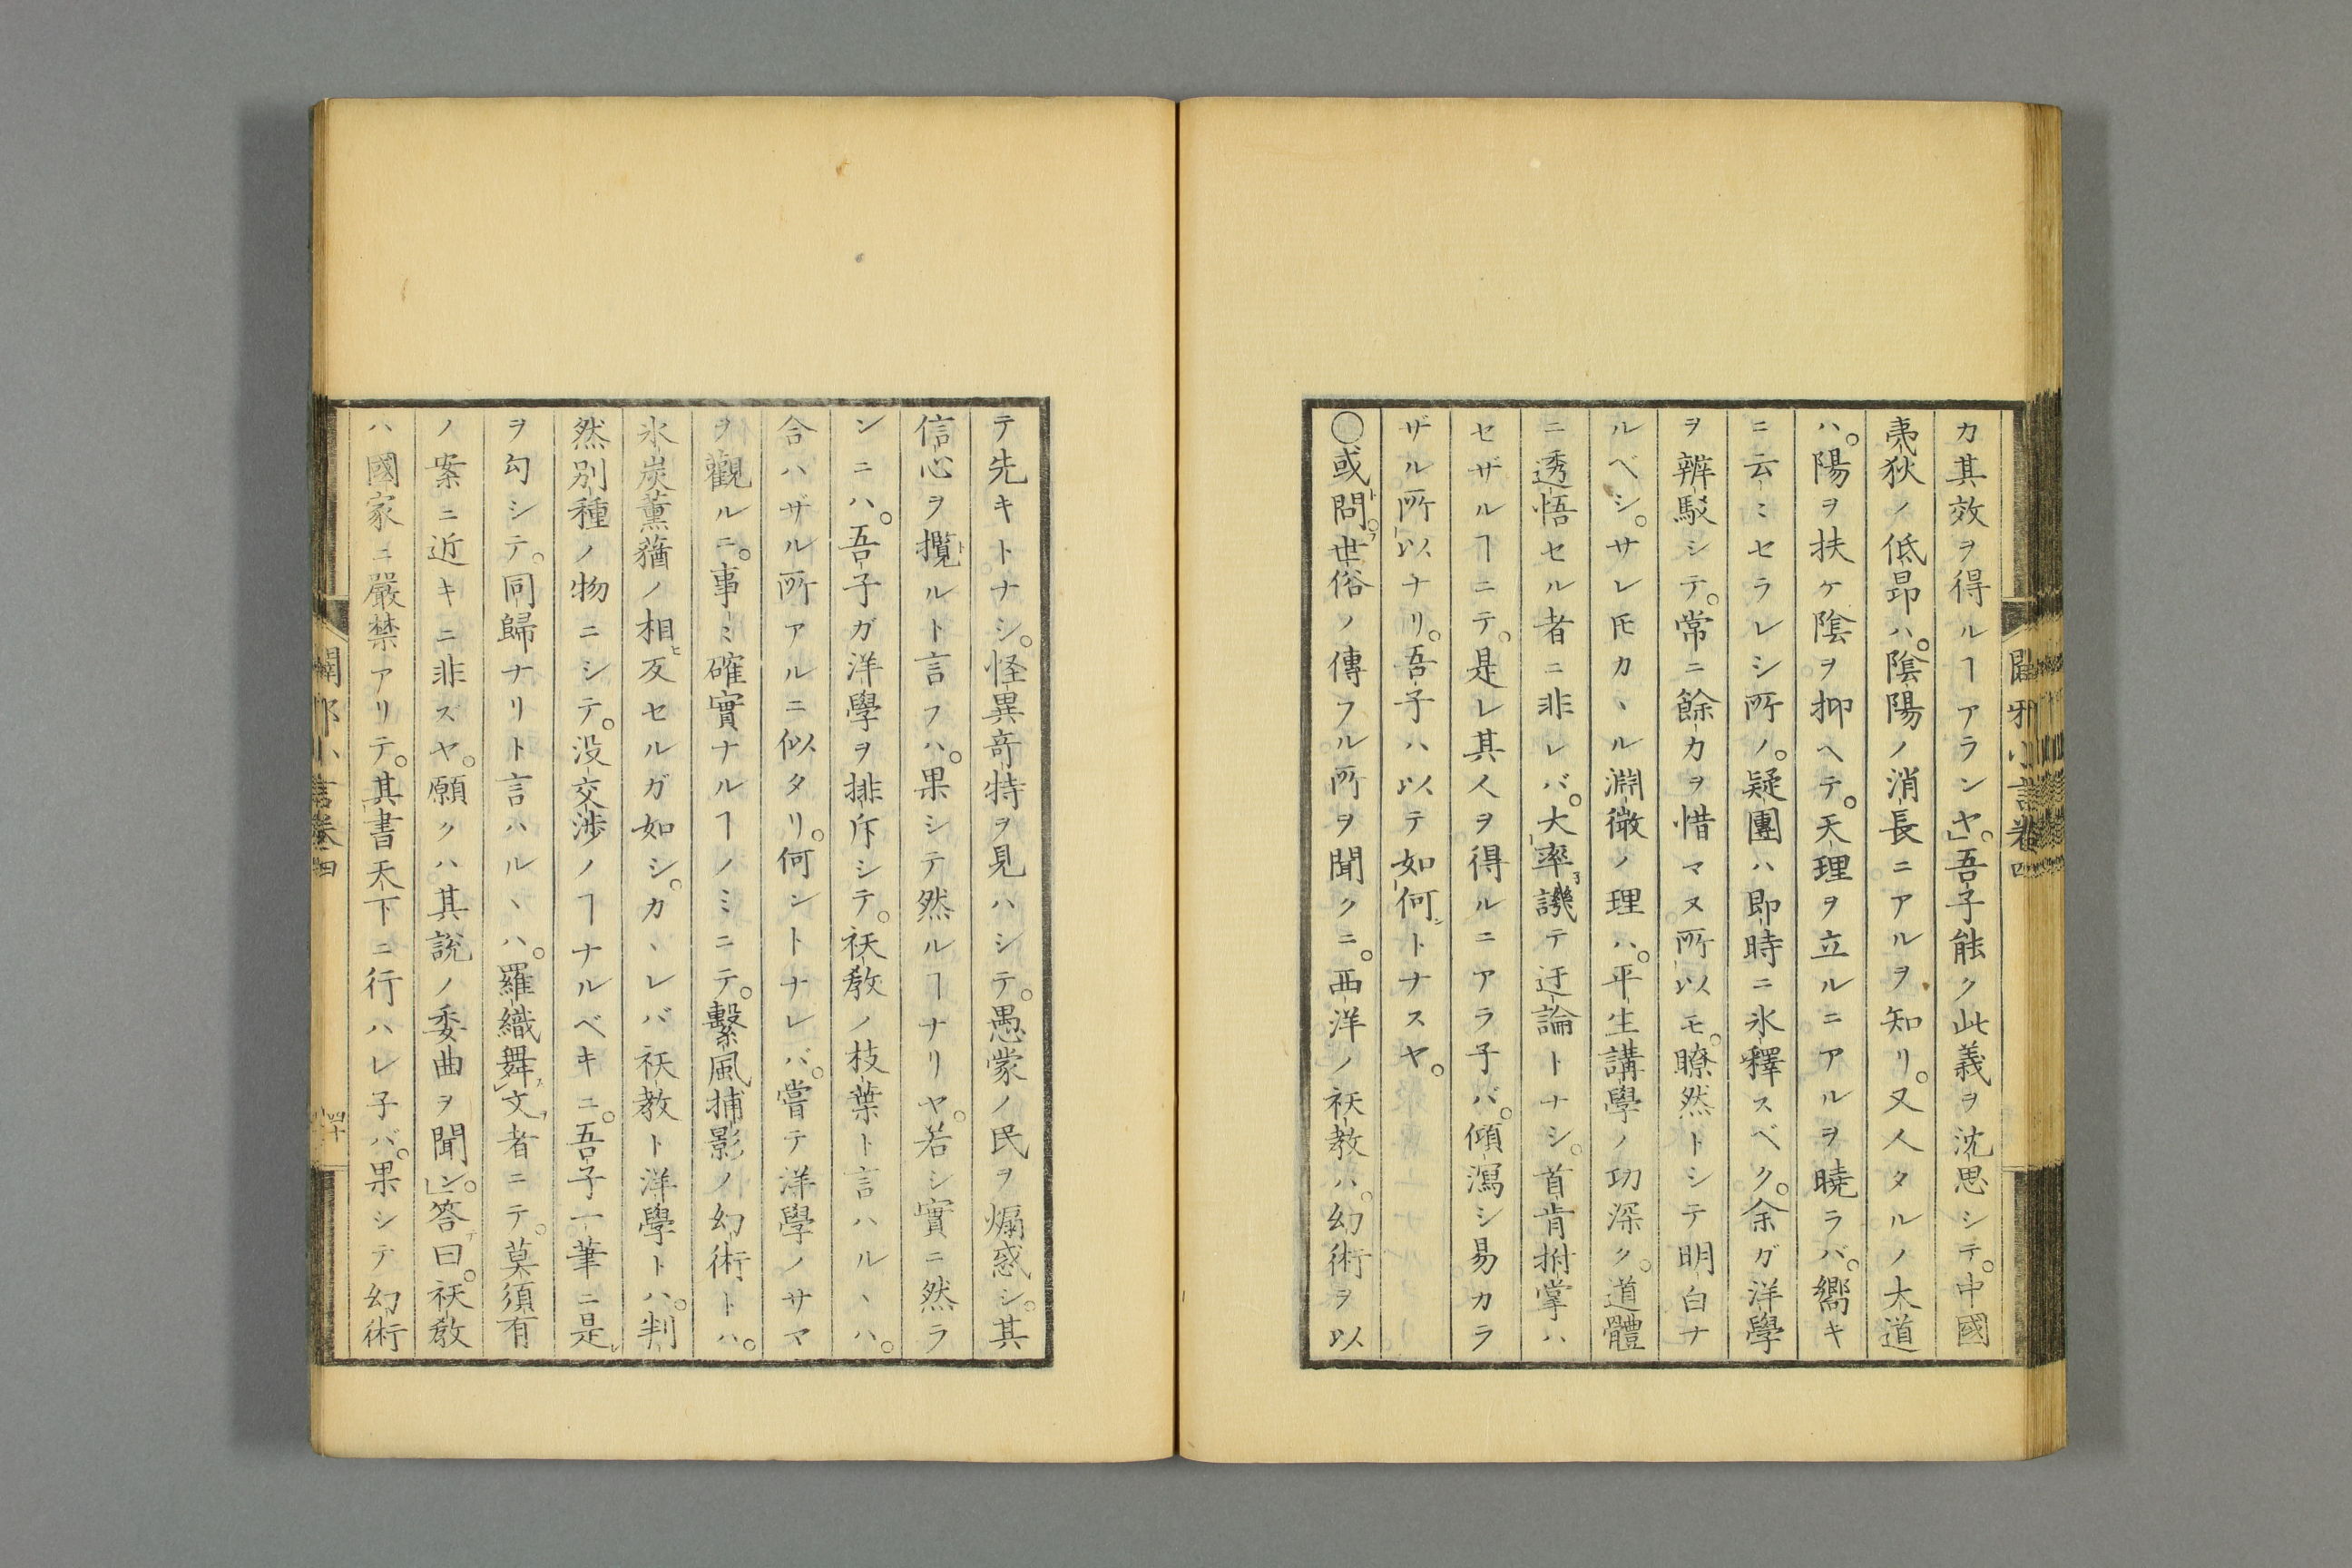 カ其效ヲ得ルヿアランヤ。」吾子能ク此義ヲ沈思シテ。中國
夷狄ノ低昂ハ。陰陽ノ消長ニアルヲ知リ。又人タルノ大道
ハ。陽ヲ扶ケ陰ヲ抑ヘテ。天理ヲ立ルニアルヲ曉ラバ。嚮キ
ニ云〻セラレシ所ノ。疑團ハ即時ニ氷釋スベク。余ガ洋學
ヲ辨駁シテ。常ニ餘力ヲ惜マヌ所以モ。瞭然トシテ明白ナ
ルベシ。サレ𪜈カヽル淵微ノ理ハ。平生講學ノ功深ク。道體
ニ透悟セル者ニ非レバ。大率譏テ迂論トナシ。首肯拊掌ハ
セザルヿニテ。是レ其人ヲ得ルニアラ子バ。傾瀉シ易カラ
ザル所以ナリ。吾子ハ以テ如何トナスヤ。
〇或問。世俗ノ傳フル所ヲ聞クニ。西洋ノ祅教ハ。幻術ヲ以
テ先キトナシ。怪異竒特ヲ見ハシテ。愚蒙ノ民ヲ煽惑シ。其
信心ヲ攬ルト言フハ。果シテ然ルヿナリヤ。若シ實ニ然ラ
ンニハ。吾子ガ洋學ヲ排斥シテ。祅教ノ枝葉ト言ハルヽハ。
合ハザル所アルニ似タリ。何ントナレバ。嘗テ洋學ノサマ
ヲ觀ルニ。事〻確實ナルヿノミニテ。繫風捕影ノ幻術トハ。
氷炭薰蕕ノ相反セルガ如シ。カヽレバ祅教ト洋學トハ。判
然別種ノ物ニシテ。没交渉ノヿナルベキニ。吾子一筆ニ是
ヲ勾シテ。同歸ナリト言ハルヽハ。羅織舞文者ニテ。莫須有
ノ案ニ近キニ非ズヤ。願クハ其說ノ委曲ヲ聞ン。」答曰。祅教
ハ國家ニ嚴禁アリテ。其書天下ニ行ハレ子バ。果シテ幻術
闢邪小言卷四